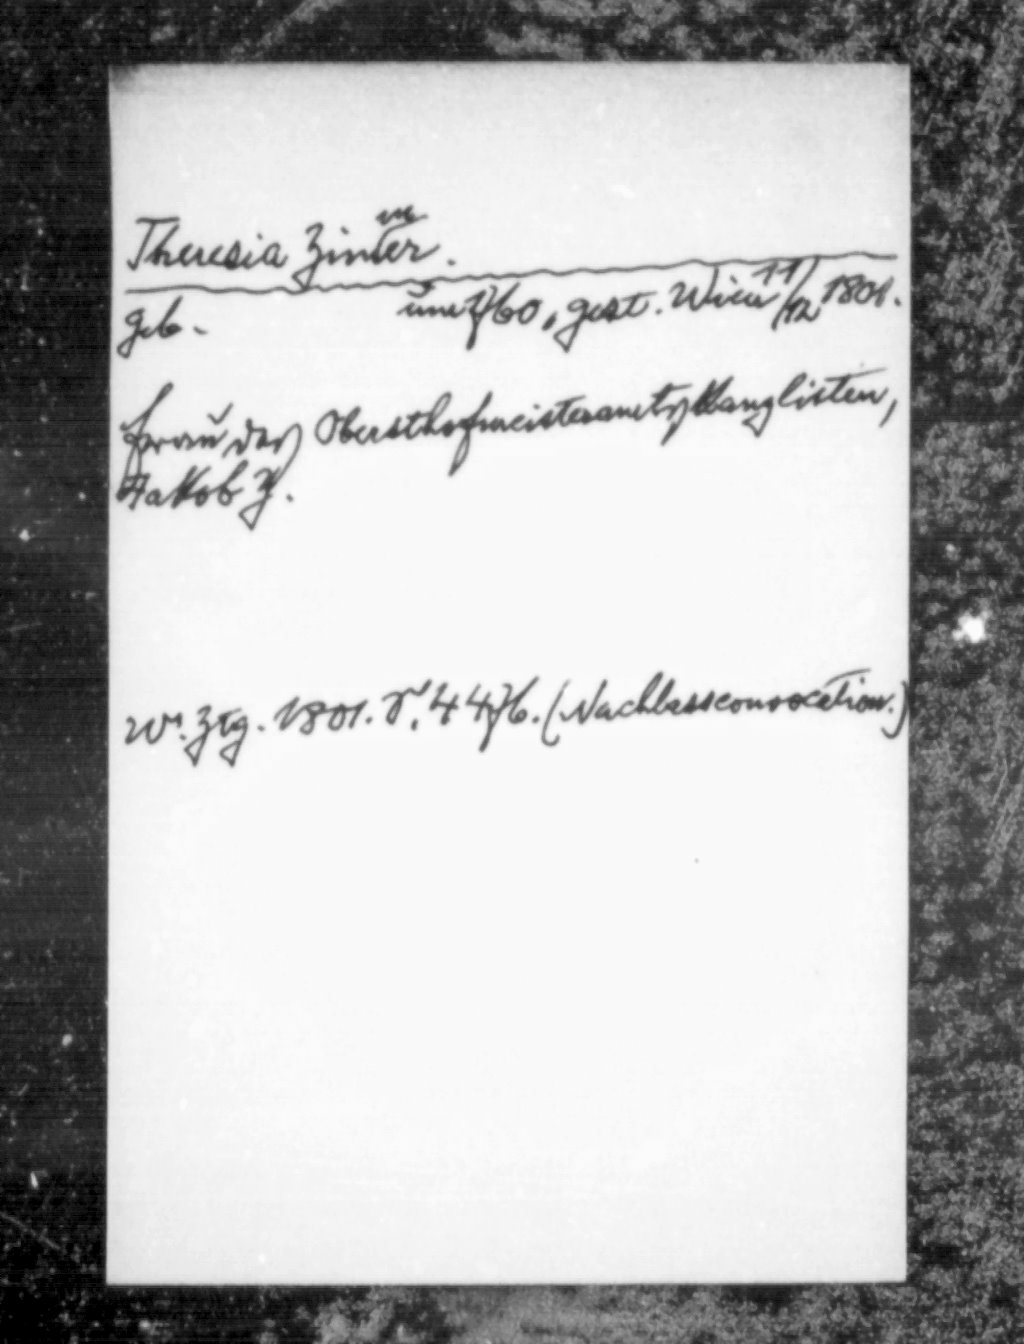 Theresia Zinner.
geb. um 1760, gest. Wien 11/12 1801.
Frau des Obersthofmeisteramtskanzlisten,
Jakob Z.
Wr. Ztg. 1801. S. 4476. (Nachlassconvocation.)